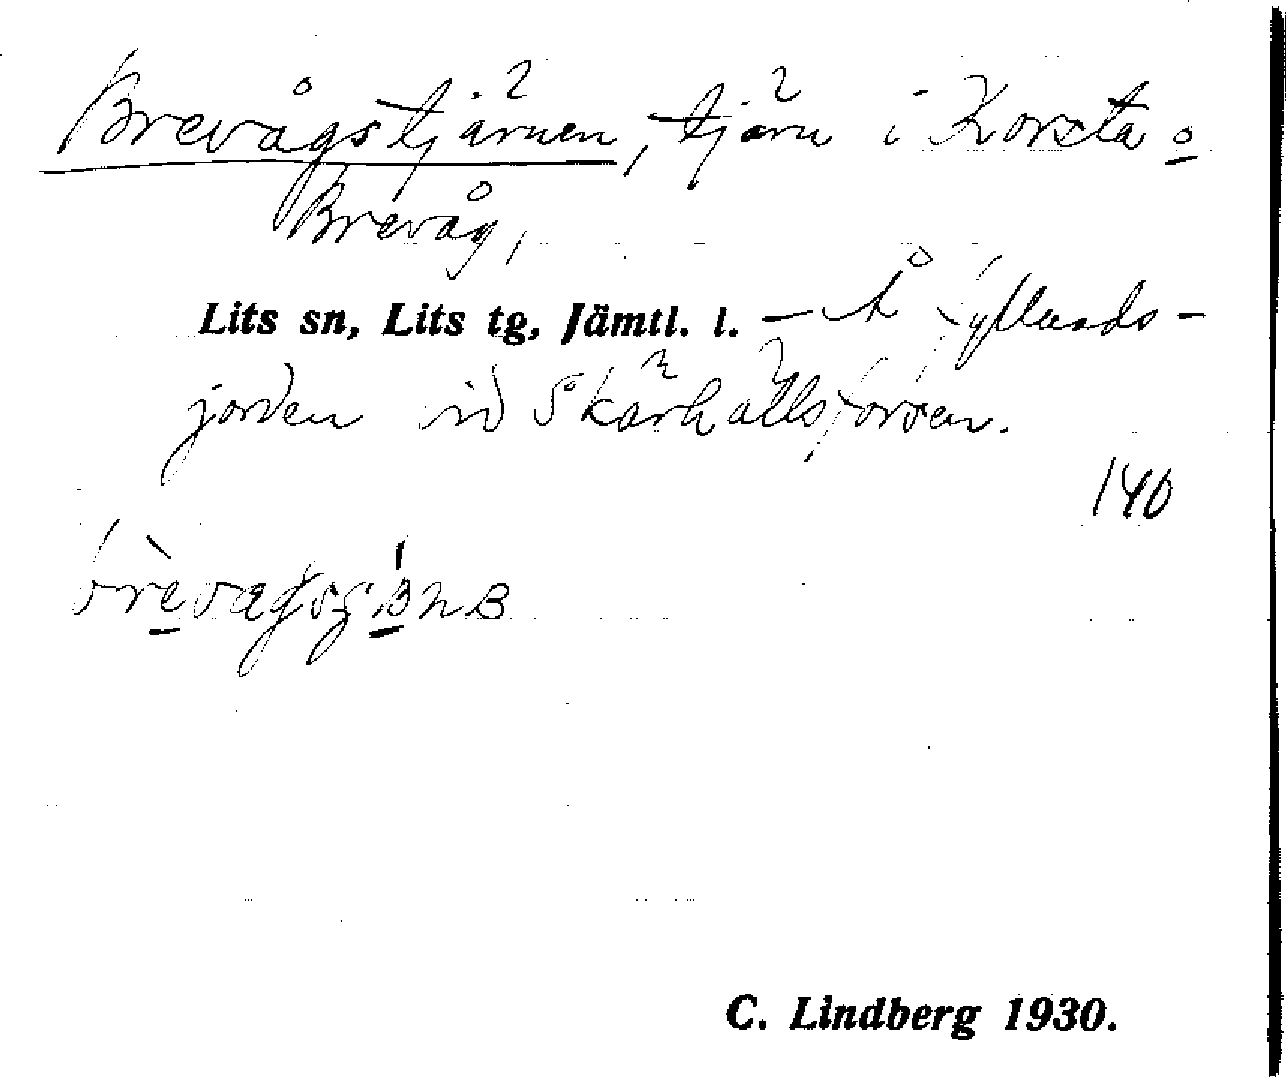 Brevågstjärnen, tjärn i Korsta o
Brevåg,
Lits sn, Lits tg, Jämtl. l. – Å
jorden vid Skärhållsforsen.
140
C. Lindberg 1930.